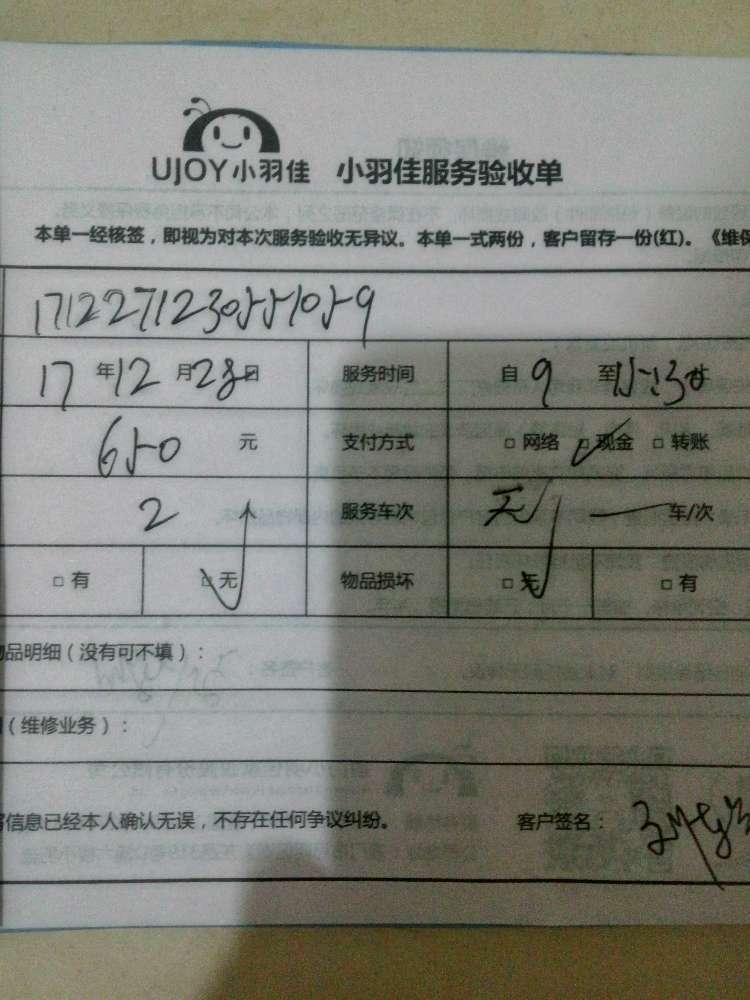 UJOY小羽佳 小羽佳服务验收单
本单一经核签，即视为对本次服务验收无异议。本单一式两份，客户留存一份(红)。《维保
17 年 12 月 28 日 服务时间 自 9 至 15:30
650 元 支付方式 □ 网络 □ 现金 □ 转账
2 服务车次 无 车/次
□ 有 □ 无 物品损坏 □ 无 □ 有
品明细（没有可不填）：
（维修业务）：
信息已经本人确认无误，不存在任何争议纠纷。 客户签名：